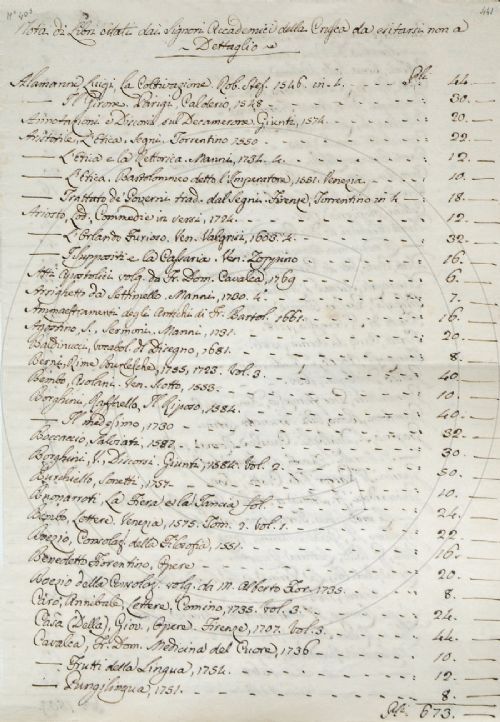 N° 403
441
Nota di Libri citati dai Signori Accademici della Crusca da esitarsi non a
Dettaglio
Alamanni, Luigi, La Coltivazione Rob. Stef. 1546. in 4. 44.
Il Girone. Parigi, Calderio, 1548 30.
Annotazioni e Discorsi sul Decamerone, Giunti, 1574. 20.
Aristotile, L'Etica, Segni, Torrentino 1550 22.
L'Etica e la Rettorica. Manni, 1734. 4. 12.
L'Etica. Bartolommeo detto l'Imperatore, 1551. Venezia 10.
Trattato de' Governi trad. dal Segni. Firenze, Torrentino in 4 18.
Ariosto, Lod. Commedie in versi, 1724. 12.
L'Orlando Furioso. Ven. Valgrisi, 1603. 4. 32.
I Suppositi e la Cassaria. Ven. Zoppino 16.
Atti Apostolici volg. da Fr. Dom. Cavalca, 1769 6.
Arrighetto da Settimello, Manni, 1730. 4. 7.
Ammaestramenti degli Antichi di Fr. Bartol. 1661. 16.
Agostino, S. Sermoni, Manni, 1731. 20.
Baldinucci, Vocabol. di Disegno, 1681. 8.
Berni, Rime Burlesche, 1555, 1723. Vol. 3. 40.
Bembo, Asolani. Ven. Scotto, 1553. 10.
Borghini, Raffaello, Il Riposo, 1584. 40.
Il medesimo, 1730 32.
Boccaccio, Salviati, 1587. 30.
Borghini, V., Discorsi, Giunti, 1584. Vol. 2. 50.
Burchiello, Sonetti, 1757. 10.
Buonarroti La Fiera e la Tancia fol. 24.
Bembo, Lettere, Venezia, 1575. Tom. 2. vol. 1. 22.
Boezio, Consolaz. della Filosofia, 1551. 16.
Benedetto Fiorentino, Opere 20.
Boezio della Consolaz. volg. da M. Alberto Fior. 1735. 8.
Caro, Annibale, Lettere, Comino, 1735. Vol. 3. 24.
Casa (Della), Giov., Opere. Firenze, 1707. Vol. 3. 44.
Cavalca, Fr. Dom. Medicina del Cuore, 1736 10.
Frutti della Lingua, 1754. 12.
Pungilingua, 1751. 8.
673.